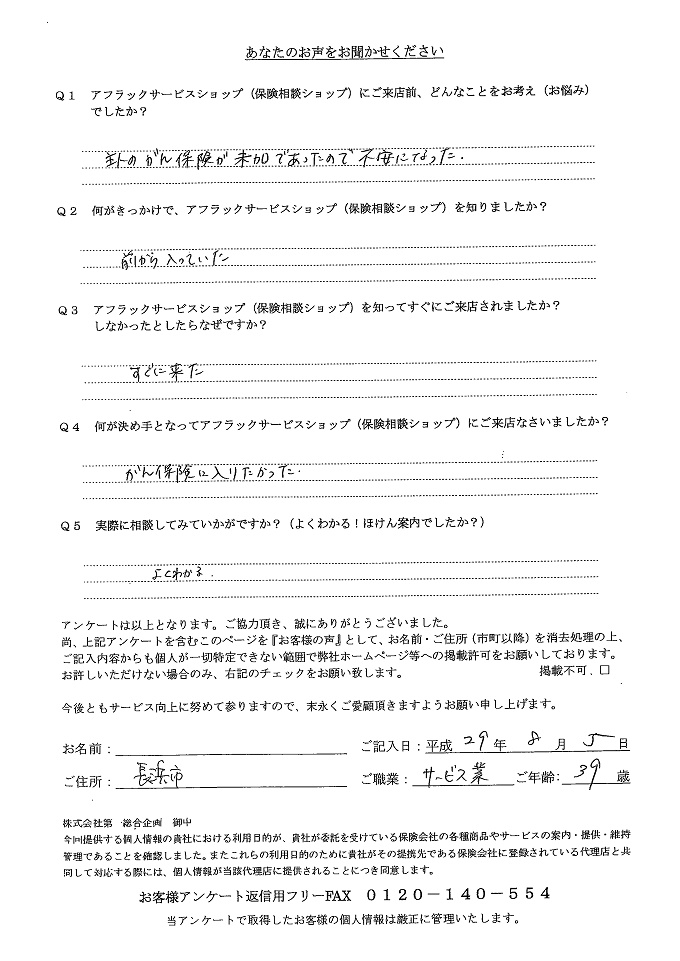 あなたのお声をお聞かせください
Q1 アフラックサービスショップ(保険相談ショップ)にご来店前、どんなことをお考え(お悩み)
でしたか?
のがん保険が未加であったので不安になった.
Q2 何がきっかけで、アフラックサービスショップ(保険相談ショップ)を知りましたか?
前から入っていた
Q3 アフラックサービスショップ(保険相談ショップ)を知ってすぐにご来店されましたか?
しなかったとしたらなぜですか?
すぐに来た
Q4 何が決め手となってアフラックサービスショップ(保険相談ショップ)にご来店なさいましたか?
がん保険に入りたかった.
Q5 実際に相談してみていかがですか?(よくわかる!ほけん案内でしたか?)
よくわかる.
アンケートは以上となります。ご協力頂き、誠にありがとうございました。
尚、上記アンケートを含むこのページを『お客様の声』として、お名前・ご住所(市町以降)を消去処理の上、
ご記入内容からも個人が一切特定できない範囲で弊社ホームページ等への掲載許可をお願いしております。
お許しいただけない場合のみ、右記のチェックをお願い致します。 掲載不可.□
今後ともサービス向上に努めて参りますので、末永くご愛顧頂きますようお願い申し上げます。
お名前: ご記入日:平成 29 年 8 月 5 日
ご住所: 長浜市 ご職業: サービス業 ご年齢: 39 歳
株式会社第一総合企画 御中
今回提供する個人情報の貴社における利用目的が、貴社が委託を受けている保険会社の各種商品やサービスの案内・提供・維持
管理であることを確認しました。またこれらの利用目的のために貴社がその提携先である保険会社に登録されている代理店と共
同して対応する際には、個人情報が当該代理店に提供されることにつき同意します。
お客様アンケート返信用フリーFAX 0120-140-554
当アンケートで取得したお客様の個人情報は厳正に管理いたします。